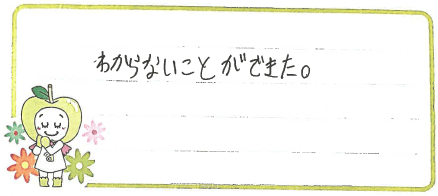 わからないことができた。